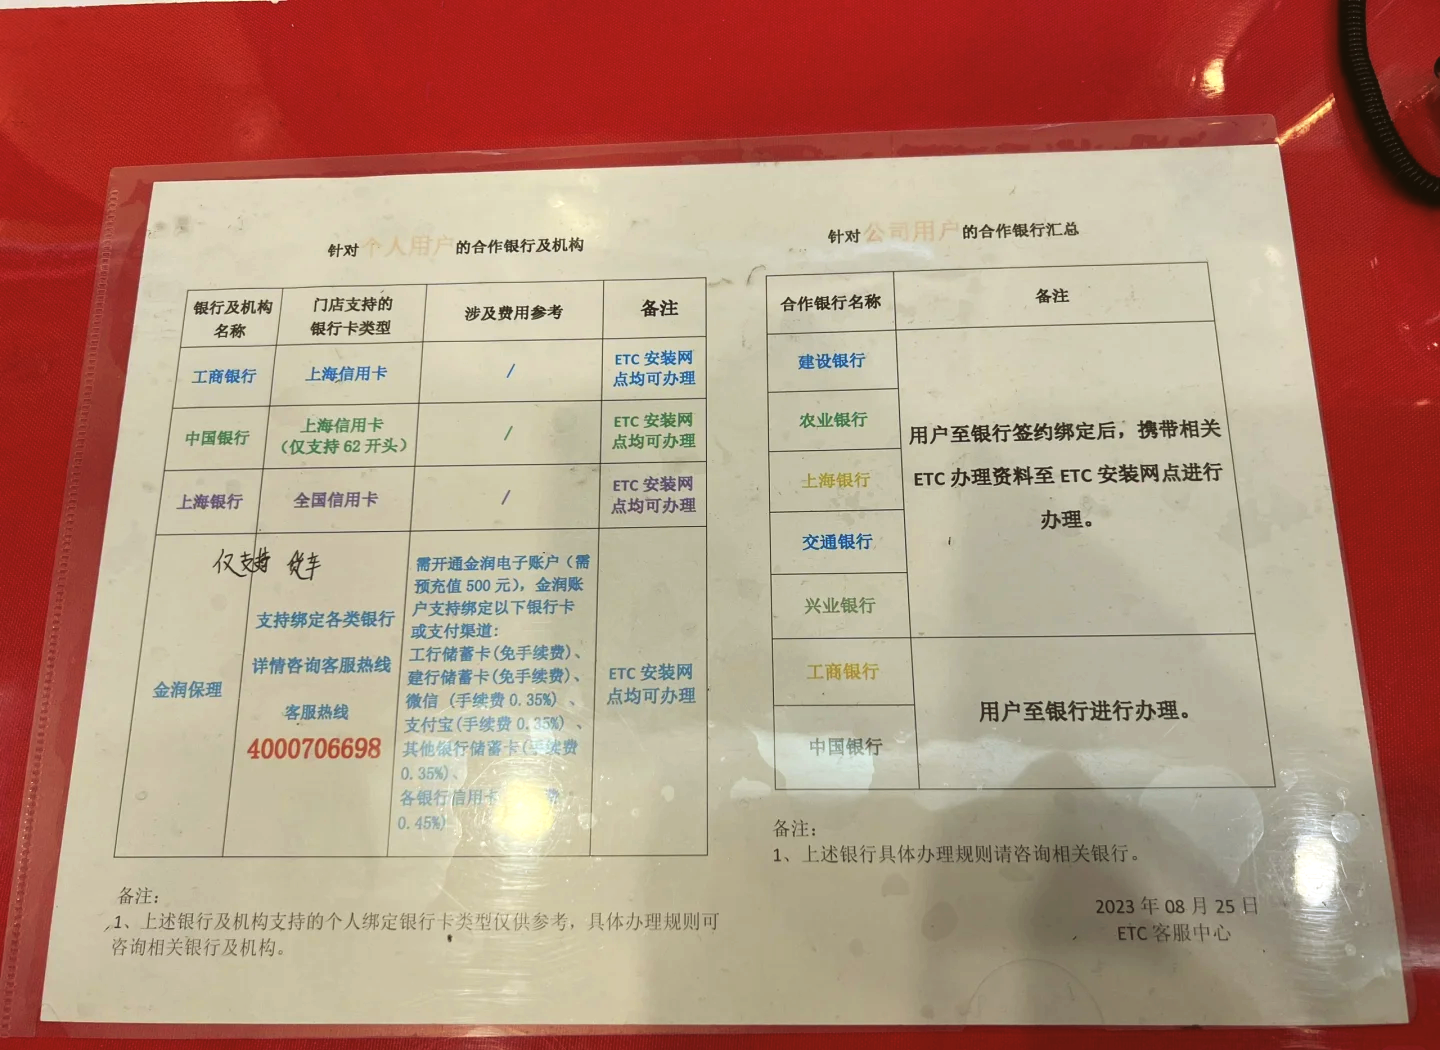 针对个人用户的合作银行及机构
银行及机构
名称
门店支持的
银行卡类型
涉及费用参考
备注
工商银行
上海信用卡
/
ETC 安装网
点均可办理
中国银行
上海信用卡
（仅支持 62 开头）
/
ETC 安装网
点均可办理
上海银行
全国信用卡
/
ETC 安装网
点均可办理
金润保理
仅支持 货车
支持绑定各类银行
详情咨询客服热线
客服热线
4000706698
需开通金润电子账户（需
预充值 500 元），金润账
户支持绑定以下银行卡
或支付渠道:
工行储蓄卡(免手续费)、
建行储蓄卡(免手续费)、
微信 (手续费 0.35%) 、
支付宝(手续费 0.35%) 、
其他银行储蓄卡(手续费
0.35%)、
各银行信用卡 费
0.45%)
ETC 安装网
点均可办理
备注:
1、上述银行及机构支持的个人绑定银行卡类型仅供参考，具体办理规则可
咨询相关银行及机构。
针对公司用户的合作银行汇总
合作银行名称
备注
建设银行
农业银行
上海银行
交通银行
兴业银行
用户至银行签约绑定后，携带相关
ETC 办理资料至 ETC 安装网点进行
办理。
工商银行
中国银行
用户至银行进行办理。
备注:
1、上述银行具体办理规则请咨询相关银行。
2023 年 08 月 25 日
ETC 客服中心